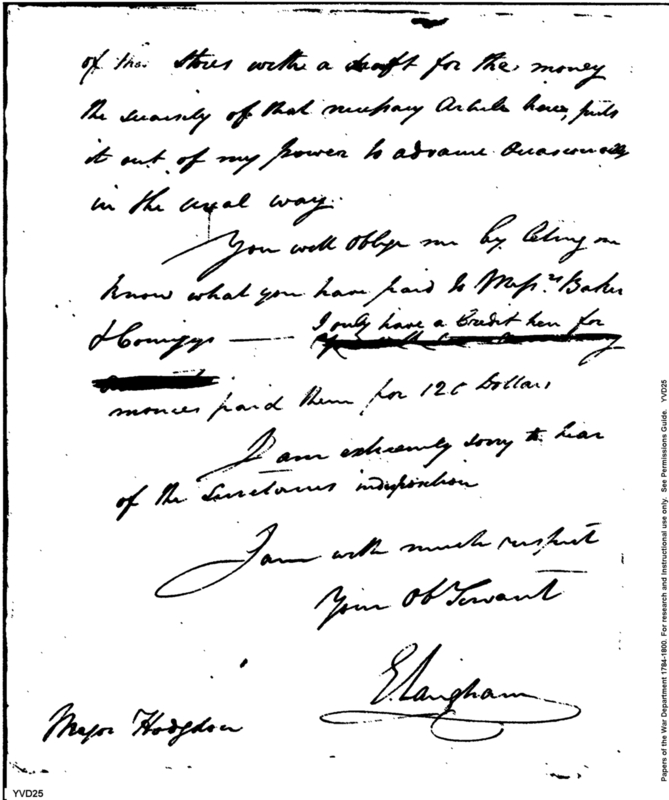 of the Stores withe a draft for the money
the scarsity of that necessary Article here, puts
it out of my power to advance Occasionally
in the usual way.
You will oblige me by leting me
know what you have paid to Messrs Baker
& Comigys — I only have a Credit here for
monies paid them for 120 Dollars
I am extremely sorry to hear
of the Secretaries indisposition
I am with much respect
Your Obt Servant
E Langham
Major Hodgdon
YVD25
Papers of the War Department 1784-1800. For research and instructional use only. See Permissions Guide. YVD25